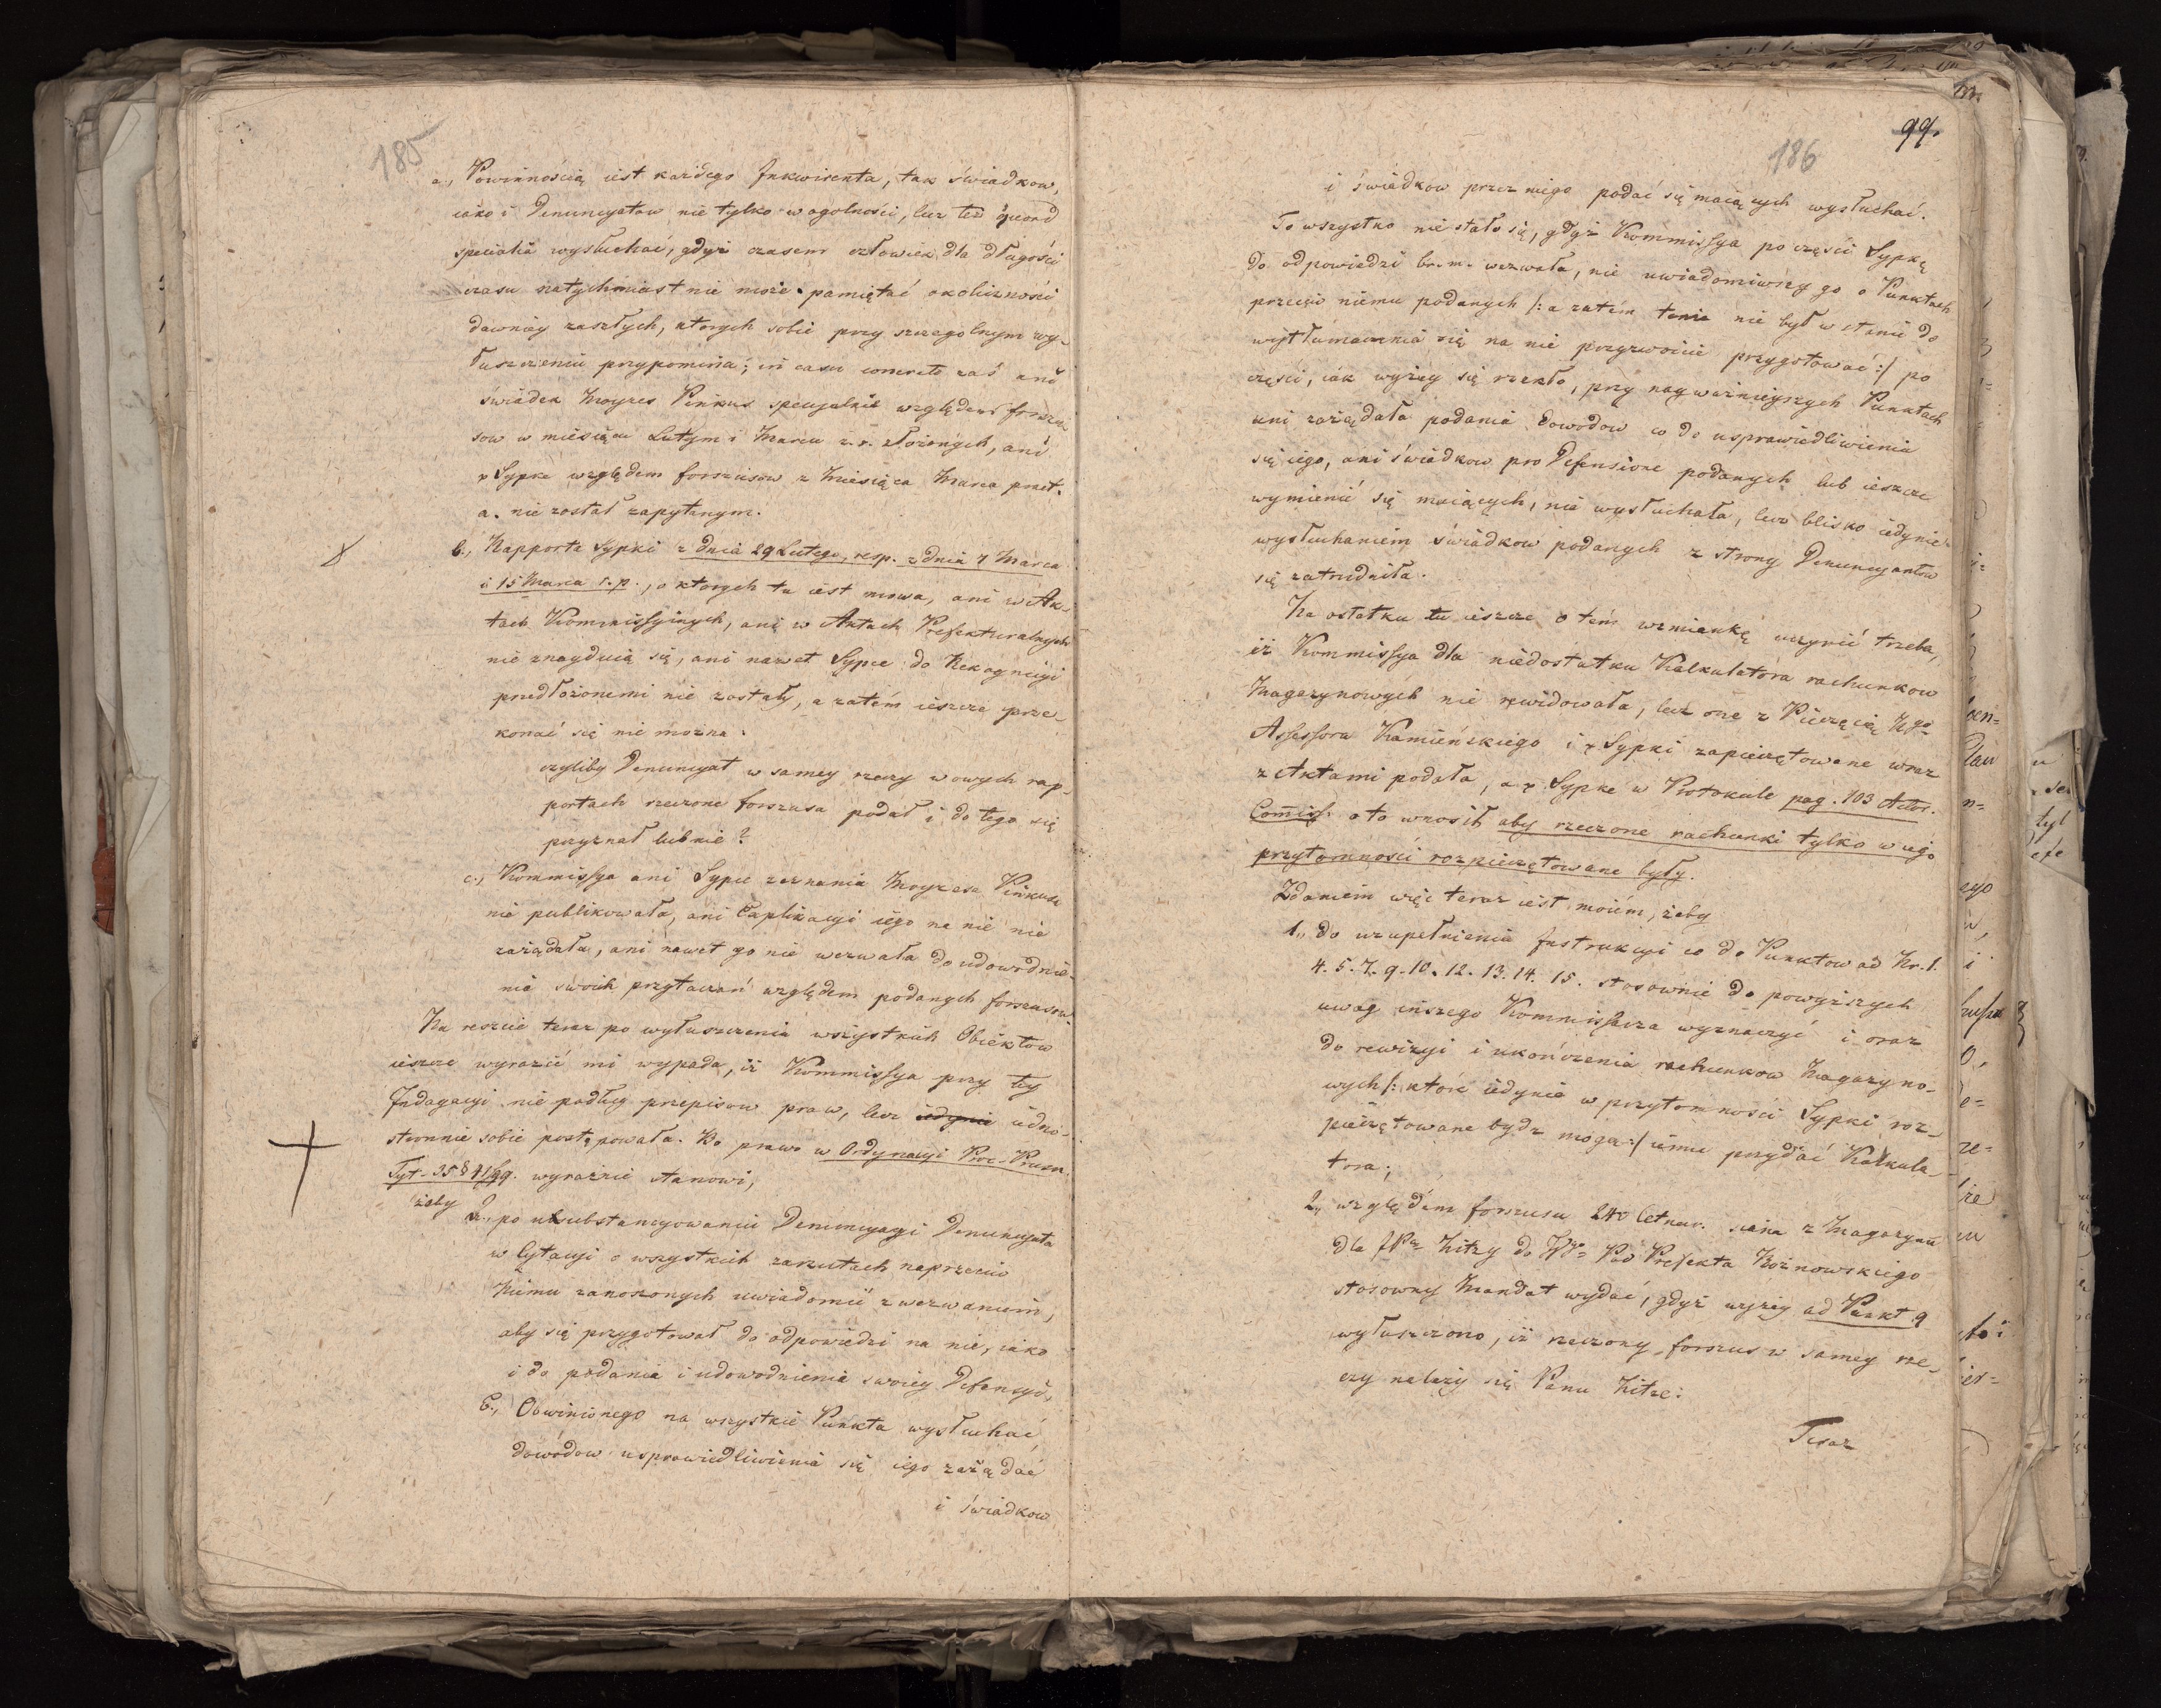 185
a., Powinnością iest każdego Inkwirenta, tak świadkow,
iako i Denuncyatow nie tylko w ogolności, lecz też quoad
specialia wysłuchać, gdyż czasem człowiek dla długości
czasu natychmiast nie może pamiętać okoliczności
dawniey zaszłych, ktorych sobie przy szczegolnym wy-
łuszczeniu przypomina; in casu concreto zaś ani
świadek Moyzes Pinkus specyalnie względem forszu
sow w miesiącu Lutym i Marcu r. z. złożonych, ani
x Sypke względem forszusow z Miesiąca Marca praet.
a. nie został zapytanym.
b., Rapporta Sypki z dnia 29 Lutego, resp. z dnia 7 Marca
i 15 Marca r. p., o ktorych tu iest mowa, ani w Ak-
tach Kommissyinych, ani w Aktach Prefekturalnych
nie znayduią się, ani nawet Sypce do Rekognicyi
przedłożonemi nie zostały, a zatém ieszcze prze-
konać się nie można.
czyliby Denuncyat w samey rzeczy w owych rap-
portach rzeczone forszusa podał i do tego się
przyznał lub nie?
c., Kommissya ani Sypce zeznania Moyzesa Pinkusa
nie publikowała, ani Explikacyi iego na nie nie
zażądała, ani nawet go nie wezwała do udowodnie-
nia swoich przytaczań względem podanych forszusow.
Na reszcie teraz po wyłuszczeniu wszystkich Obiektow
ieszcze wyrazić mi wypada, iż Kommissya przy tey
Indagacyi nie podług przepisow praw, lecz iedynie iedno-
stronnie sobie postępowała. Bo prawo w Ordynacyi Proc. Prusk.
Tyt. 35 § wyraźnie stanowi,
żeby a., po ubsubstancyowaniu Denuncyacyi Denuncyata
w Cytacyi o wszystkich zarzutach naprzeciw
Niemu zanoszonych uwiadomić z wezwaniem,
aby się przygotował do odpowiedzi na nie, iako
i do podania i udowodnienia swoiey Defensyi,
b., Obwinionego na wszystkie Punkta wysłuchać
dowodow usprawiedliwienia się iego zażądać
i świadkow
99.
186
i świadkow przez niego podać się maiących wysłuchać.
To wszystko nie stało się, gdyż Kommissya po części Sypkę
do odpowiedzi br. m. wezwała, nie uwiadomiwszy go o Punktach
przeciw niemu podanych /: a zatém tenże nie był w stanie do
wytłumaczenia się na nie przyzwoicie przygotować :/ po
części, iak wyżey się rzekło, przy nayważnieyszych Punktach
ani zażądała podania Dowodow co do usprawiedliwienia
się iego, ani świadkow pro Defensione podanych lub ieszcze
wymienić się maiących, nie wysłuchała, lecz blisko iedynie
wysłuchaniem świadkow podanych z strony Denuncyantow
się zatrudniła.
Na ostatku tu ieszcze o tém wzmiankę uczynić trzeba,
iż Kommissya dla niedostatku Kalkulatora rachunkow
Magazynowych nie rewidowała, lecz one z Pieczęcią Wgo
Assessora Kamieńskiego i x Sypki zapieczętowane wraz
z Aktami podała, a x Sypke w Protokule pag. 103 Actor.
Comiss. o to wnosił aby rzeczone rachunki tylko w iego
przytomności rozpieczętowane były.
Zdaniem więc teraz iest moiém, żeby
1., do uzupełnienia Instrukcyi co do Punktow ad Nr. 1.
4. 5. 7. 9. 10. 12. 13. 14. 15. stosownie do powyższych
uwag inszego Kommissarza wyznaczyć i oraz
do rewizyi i ukończenia rachunkow Magazyno-
wych /: które iedynie w przytomności Sypki roz-
pieczętowane bydź mogą :/ iemu przydać Kalkula-
tora;
2., względem forszusu 240 Cetnar. siana z Magazynu
dla JPa Zitzy do Wgo Pod Prefekta Rożnowskiego
stosowny Mandat wydać, gdyż wyżey ad Punkt 9
wyłuszczono, iż rzeczony forszus w samey rze-
czy należy się Panu Zitze.